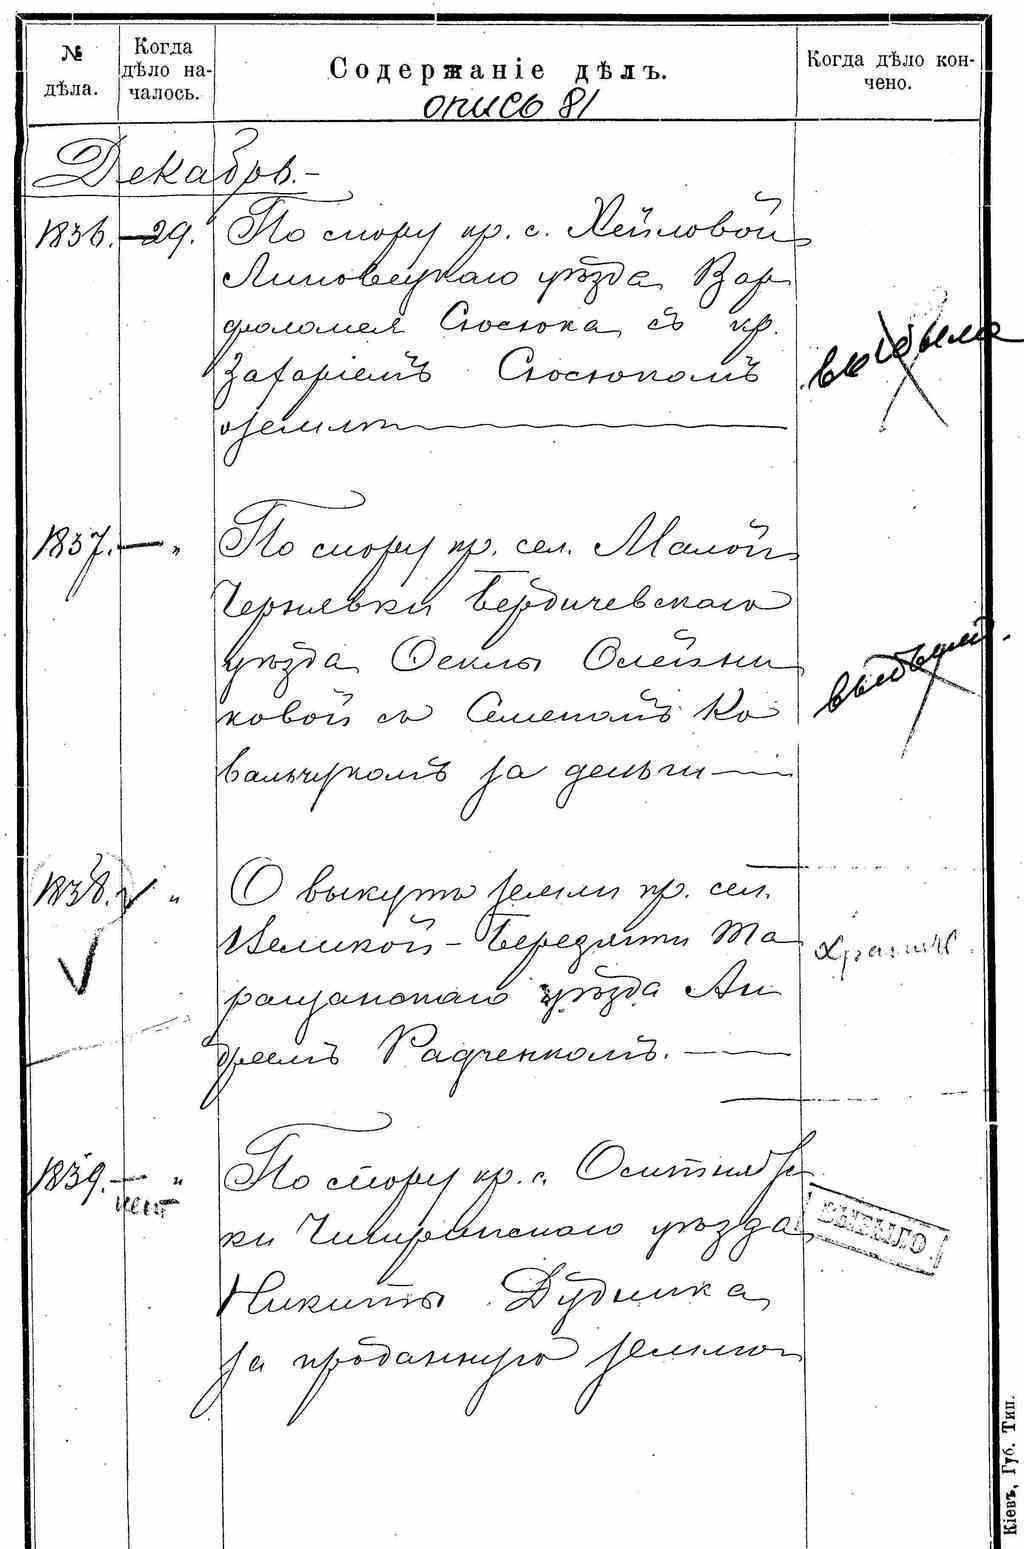 № дѣла.
Когда дѣло на-
чалось.
Содержаніе дѣлъ.
Когда дѣло кон-
чено.
опись 81
Декабрь.-
1836. — 29. По спору кр. с. Хейловой
Липовецкаго уѣзда Вар
фоломея Сюсюка съ кр.
Захаріемъ Сюсюкомъ
о землѣ
выбыло
1837. — " По спору кр. сел. Малой
Чернявки Бердичевскаго
уѣзда Феклы Олейни
ковой съ Семеномъ Ко
вальчукомъ за деньги
1838. " О выкупѣ земли кр. сел.
Великой-Березянки Та
ращанскаго уѣзда Ан
дреемъ Радченкомъ.
1839. — " По спору кр. с. Оситняж
ки Чигиринскаго уѣзда
Никиты Дудника
за проданную землю
нет
ВЫБЫЛО.
Кіевъ, Губ. Тип.